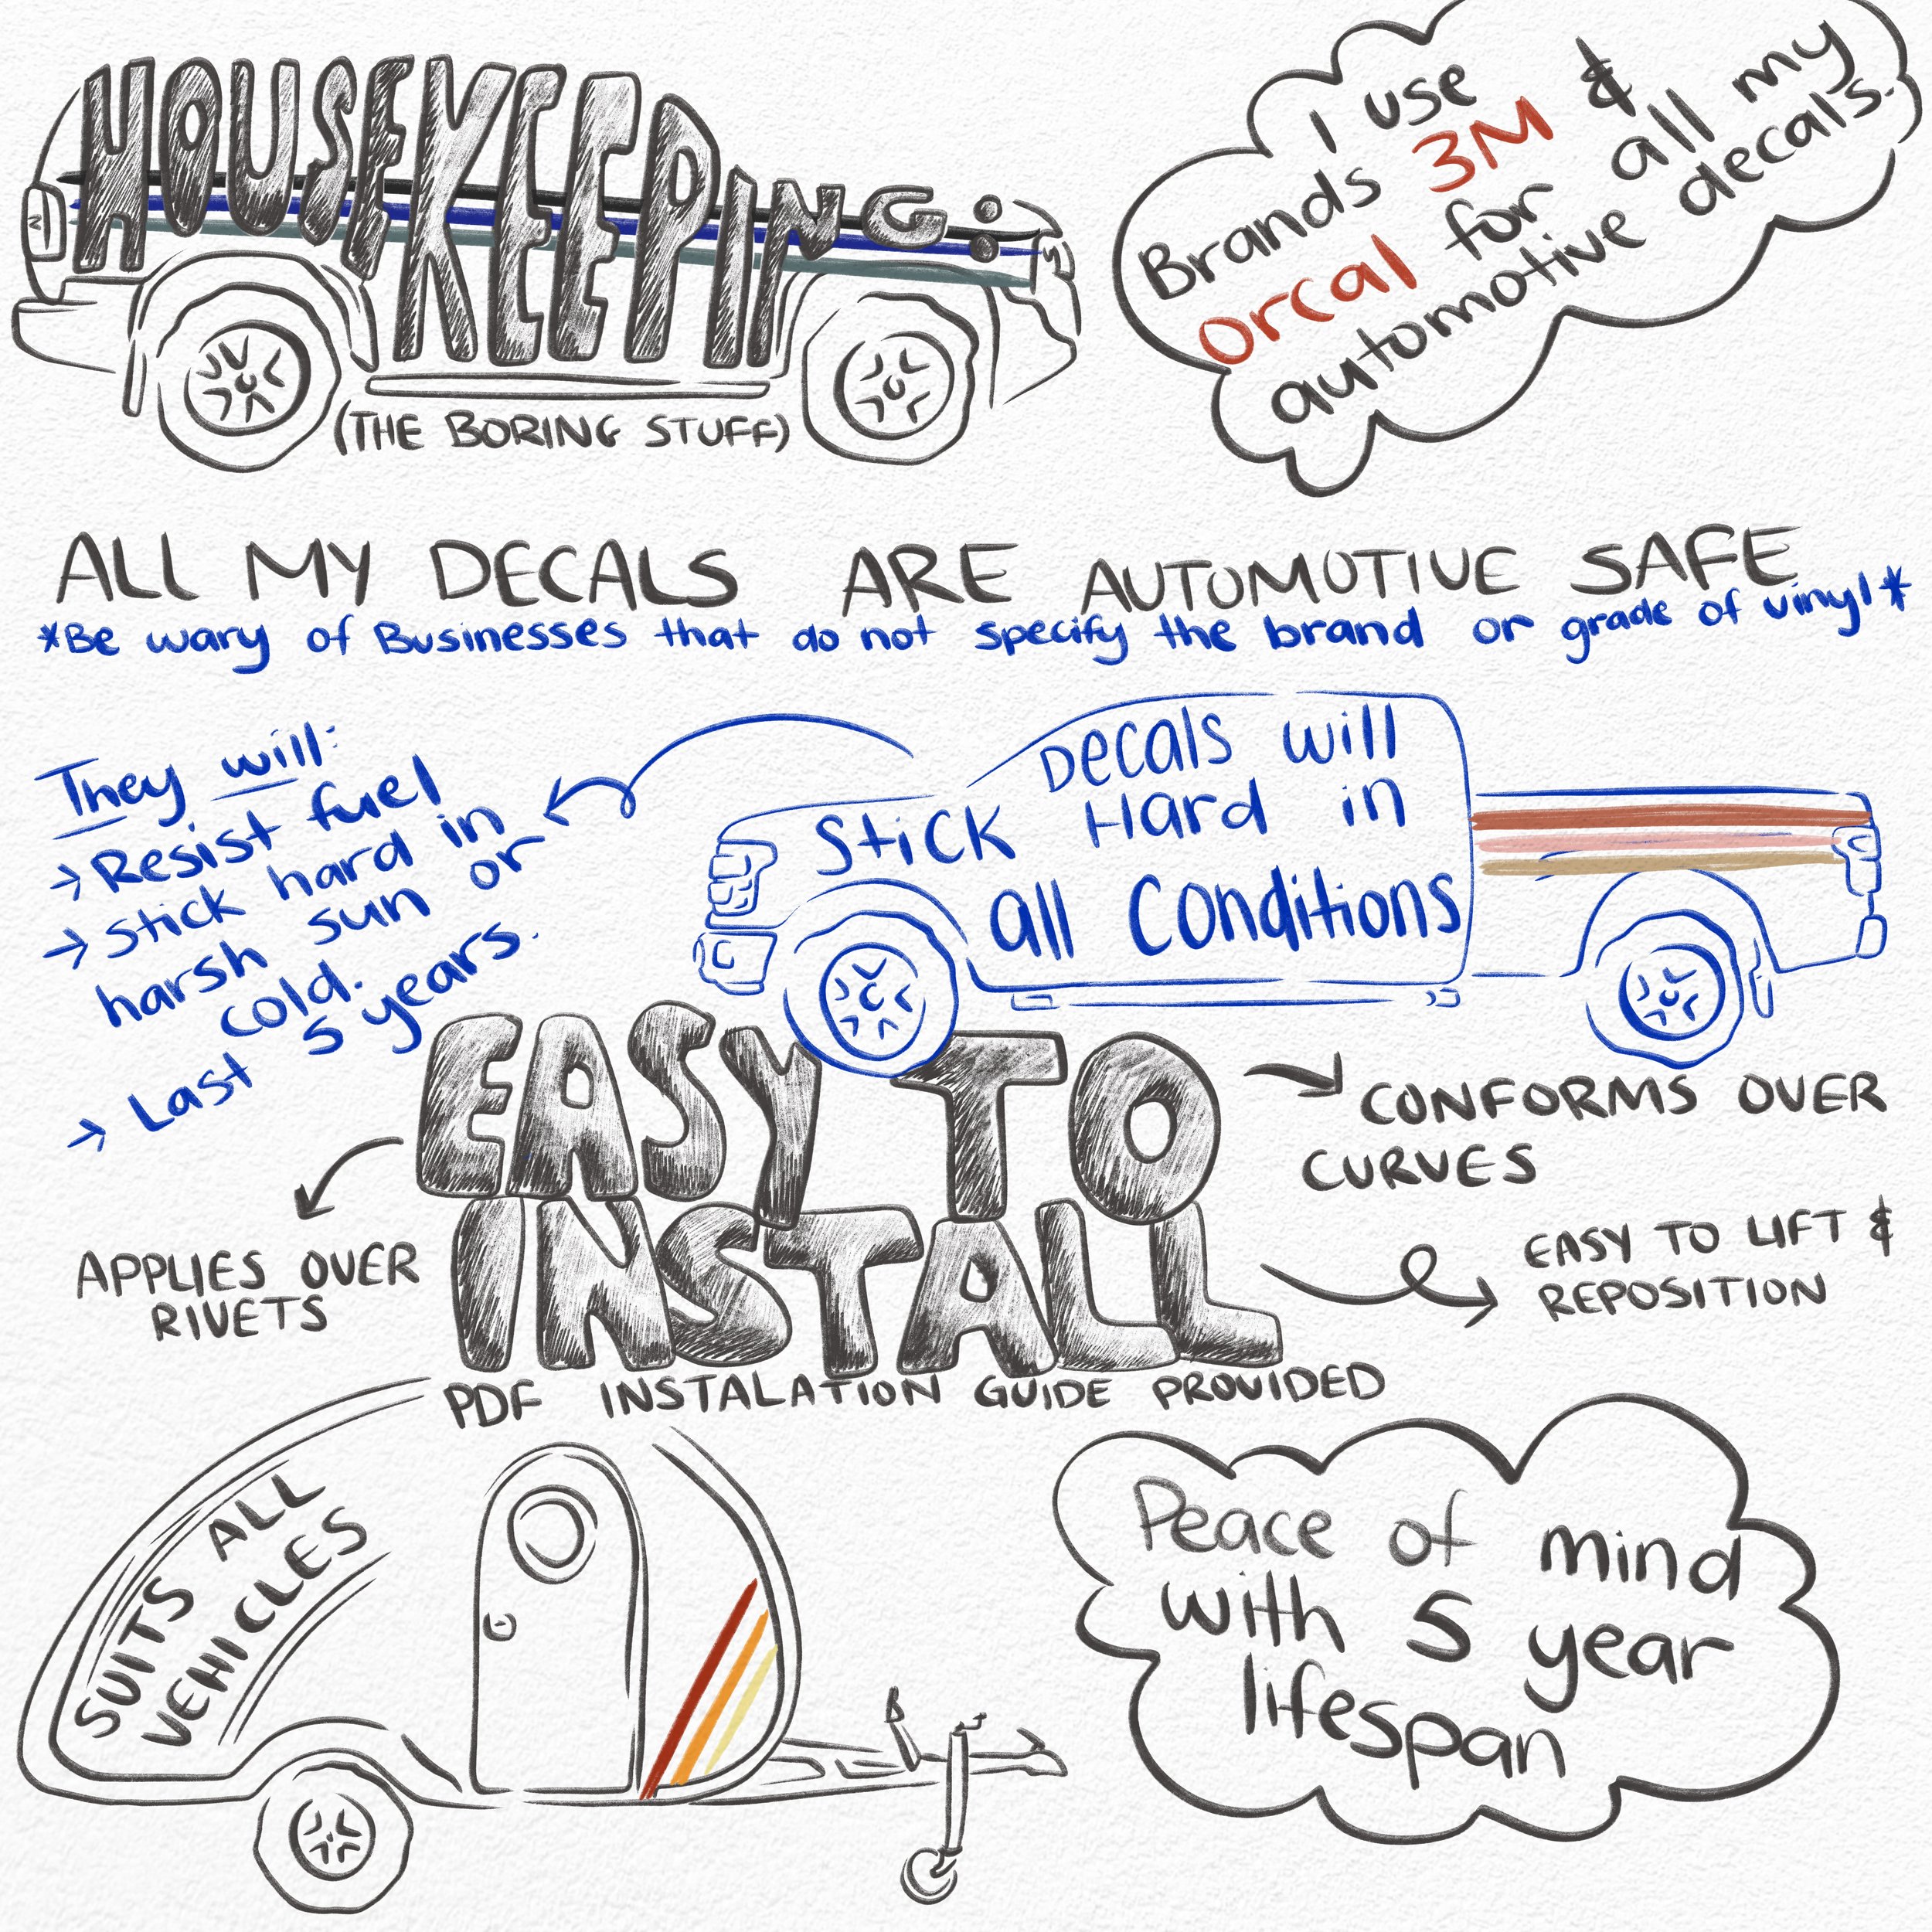 HOUSEKEEPING:
(THE BORING STUFF)
I use
Brands 3M &
Orcal for all my
automotive decals.
ALL MY DECALS ARE AUTOMOTIVE SAFE
*Be wary of Businesses that do not specify the brand or grade of vinyl*
They will:
→ Resist fuel
→ stick hard in
harsh sun or
cold.
→ Last 5 years.
Decals will
Stick Hard in
all Conditions
EASY TO
INSTALL
CONFORMS OVER
CURVES
APPLIES OVER
RIVETS
EASY TO LIFT &
REPOSITION
PDF INSTALATION GUIDE PROVIDED
SUITS ALL
VEHICLES
Peace of mind
with 5 year
lifespan